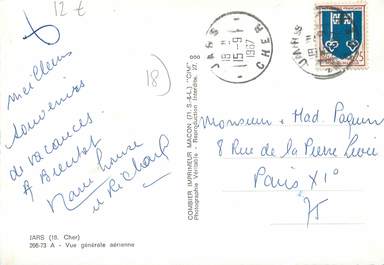 12 €
18
Meilleurs
souvenirs
de vacances.
A Bientôt
Marie Louise
et Richard
JARS (18. Cher)
366-73 A - Vue générale aérienne
COMBIER IMPRIMEUR MACON (71, S.-&-L.) "CIM"
Photographie Véritable - Reproduction Interdite.
JARS
18 H
15-9
1967
CHER
JARS
Monsieur + Mad. Paquin
8 Rue de la Pierre Levée
Paris XI°
75